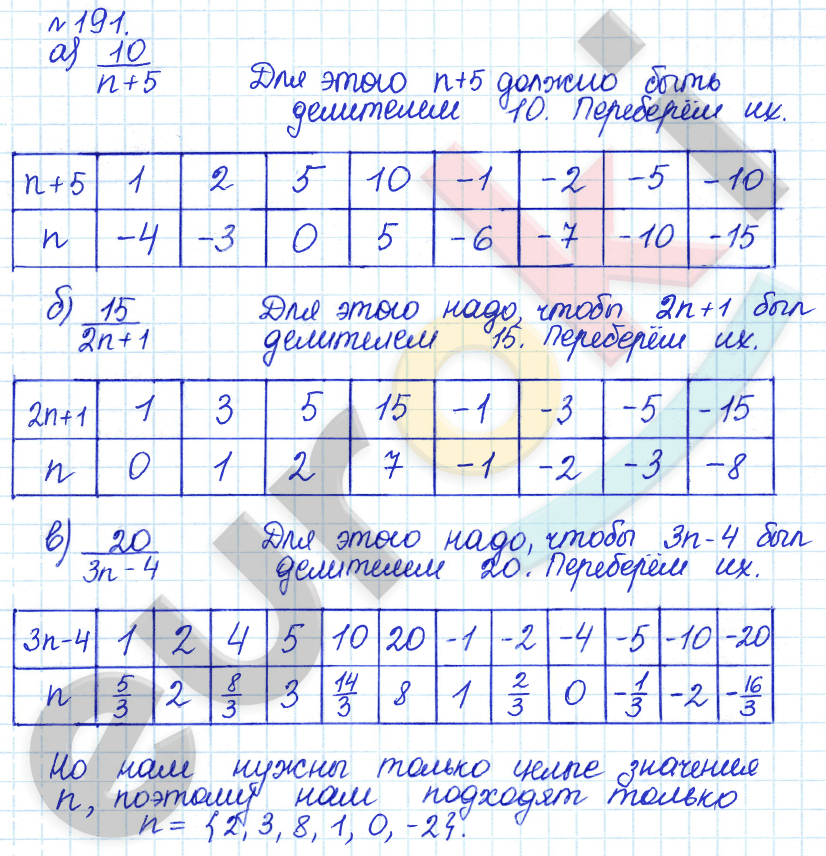 №191.
а) 10/(n+5) Для этого n+5 должно быть
делителем 10. Переберём их.
n+5 1 2 5 10 -1 -2 -5 -10
n -4 -3 0 5 -6 -7 -10 -15
б) 15/(2n+1) Для этого надо, чтобы 2n+1 был
делителем 15. Переберём их.
2n+1 1 3 5 15 -1 -3 -5 -15
n 0 1 2 7 -1 -2 -3 -8
в) 20/(3n-4) Для этого надо, чтобы 3n-4 был
делителем 20. Переберём их.
3n-4 1 2 4 5 10 20 -1 -2 -4 -5 -10 -20
n 5/3 2 8/3 3 14/3 8 1 2/3 0 -1/3 -2 -16/3
Но нам нужны только целые значения
n, поэтому нам подходят только
n = {2, 3, 8, 1, 0, -2}.
euroki